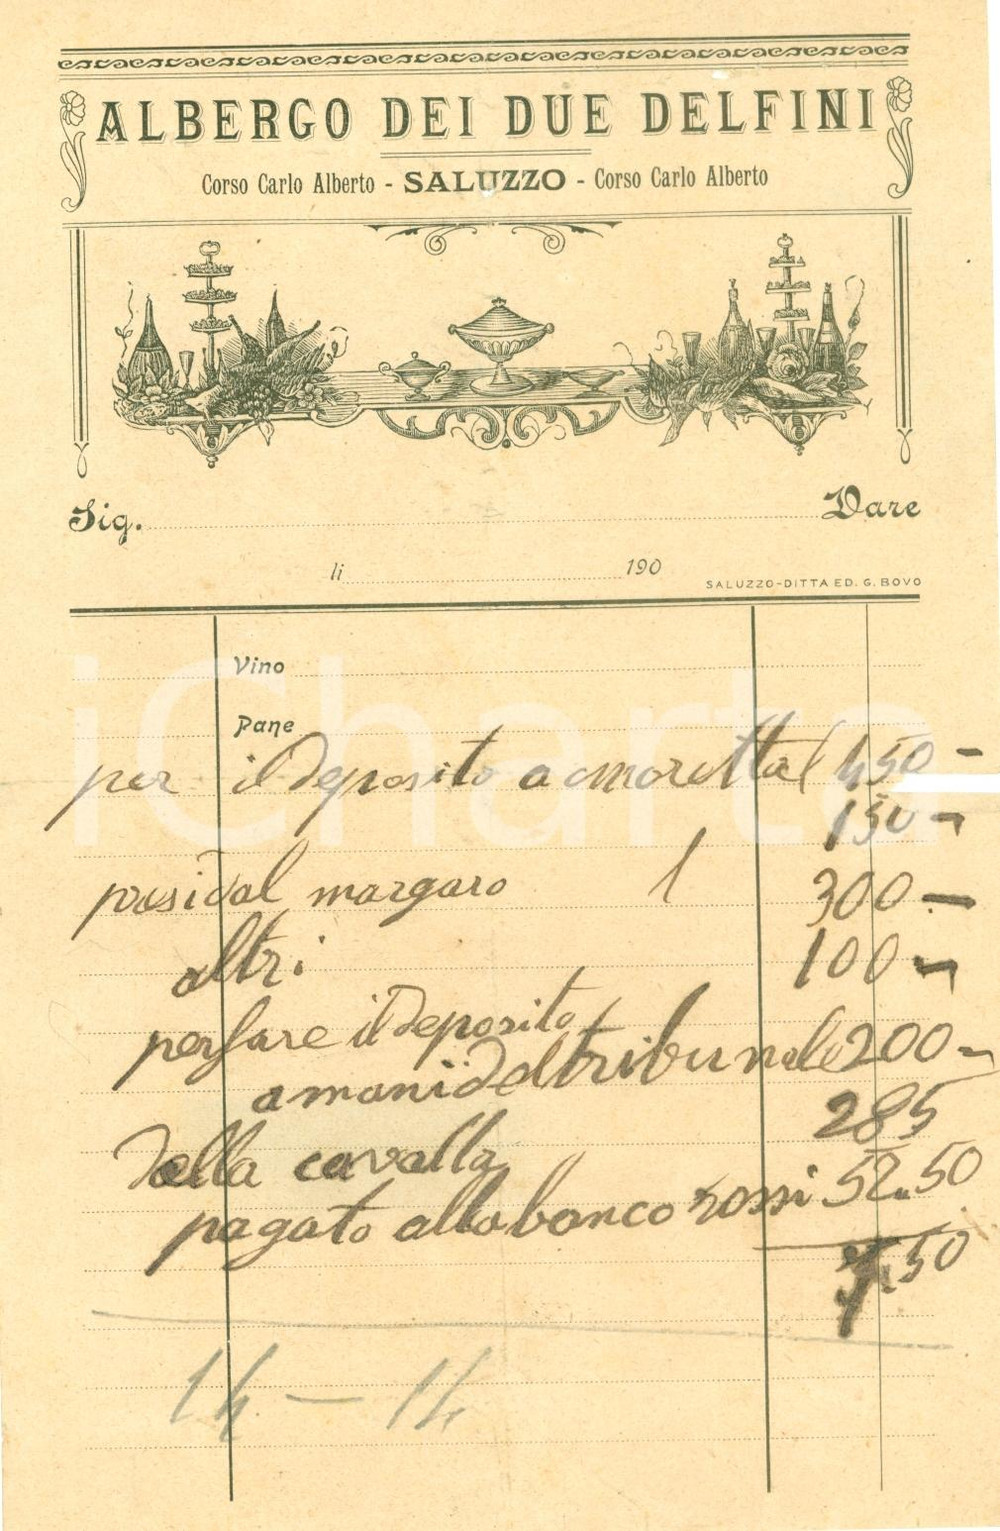 ALBERGO DEI DUE DELFINI
Corso Carlo Alberto - SALUZZO - Corso Carlo Alberto
Sig. Dare
li 190
SALUZZO-DITTA ED. G. BOVO
Vino
Pane
per il Deposito a moretta l 450 -
150 -
presi dal margaro l 300 -
altri 100 -
per fare il deposito
a mani del tribunale 200 -
285
della cavalla
pagato alla banco rossi 52.50
7.50
14 - 14
iCharta